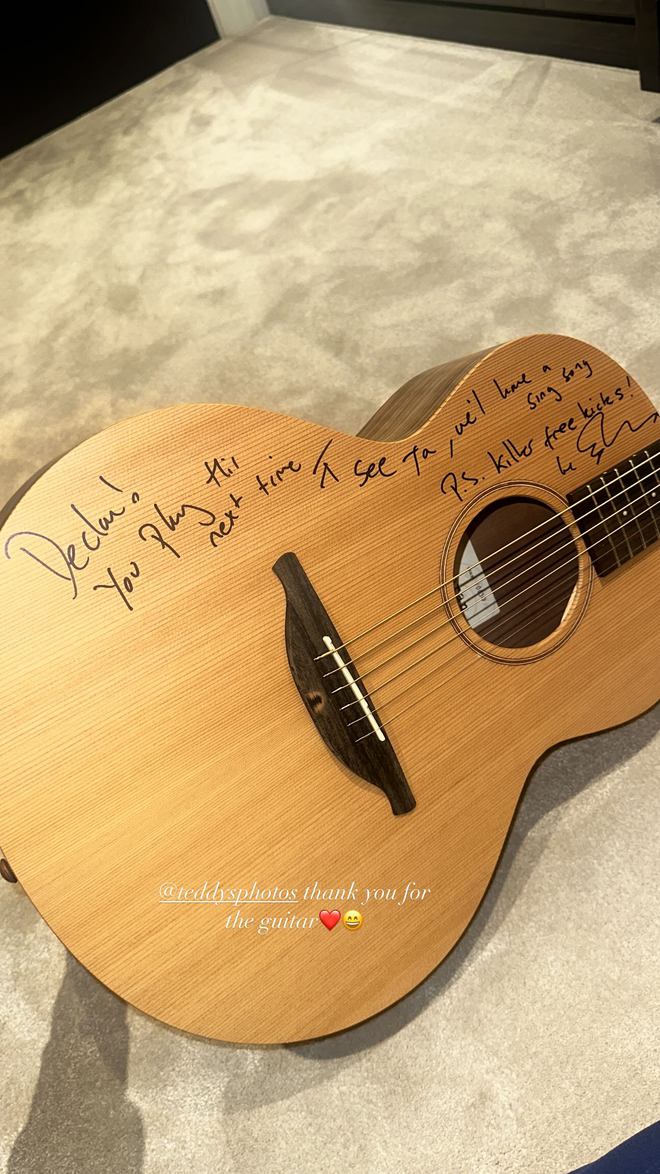 Declan!
You play this
next time I see ya, we'll have a
sing song
P.S. killer free kicks!
@teddysphotos thank you for
the guitar❤️😄